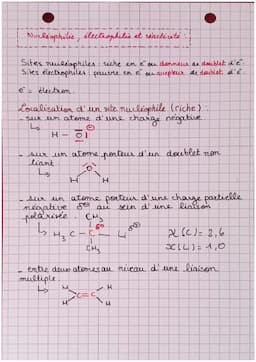 Nucléophilie, électrophilie et réactivité :
Sites nucléophiles : riche en é ou donneur de doublet d'é.
Sites électrophiles : pauvre en é ou accepteur de doublet d'é.
é = électron.
Localisation d'un site nucléophile (riche) :
- sur un atome d'une charge négative
H - O ⊖
- sur un atome porteur d'un doublet non
liant
O
H H
- sur un atome porteur d'une charge partielle
négative δ⊖ au sein d'une liaison
polarisée.
CH₃
H₃C - C δ⊖ - Li δ⊕
CH₃
χ(C) = 2,6
χ(Li) = 1,0
- entre deux atomes au niveau d'une liaison
multiple
H H
C = C
H H